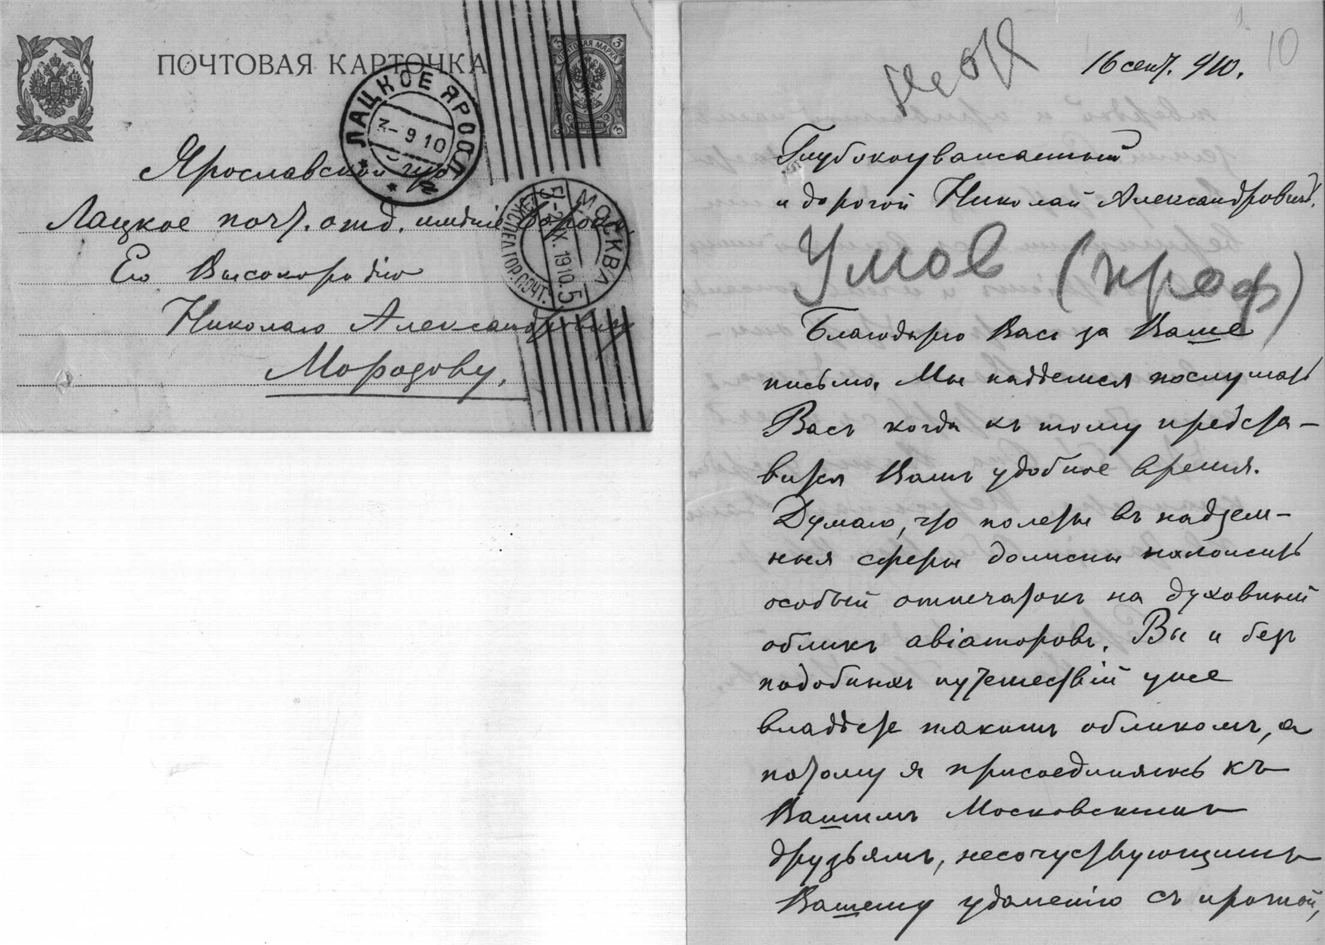 ПОЧТОВАЯ КАРТОЧКА
ПОЧТОВАЯ МАРКА
3
3
ЛАЦКОЕ ЯРОСЛ.
3-9 10
МОСКВА
1910. 5
ЭКСПЕД. ГОР. ПОЧТ.
Ярославской губ.
Лацкое почт. отд. имѣніе Борокъ
Его Высокородію
Николаю Александровичу
Морозову.
10
16 сент. 910.
Глубокоуважаемый
и дорогой Николай Александровичъ.
Умов (проф)
Благодарю Васъ за Ваше
письмо. Мы надѣемся послушать
Васъ когда къ тому предста-
вится Вамъ удобное время.
Думаю, что полеты въ надзем-
ныя сферы должны наложить
особый отпечатокъ на духовный
обликъ авіаторовъ. Вы и безъ
подобныхъ путешествій уже
владѣете такимъ обликомъ, а
потому я присоединяюсь къ
Вашимъ Московскимъ
друзьямъ, несочувствующимъ
Вашему удаленію съ прочной,